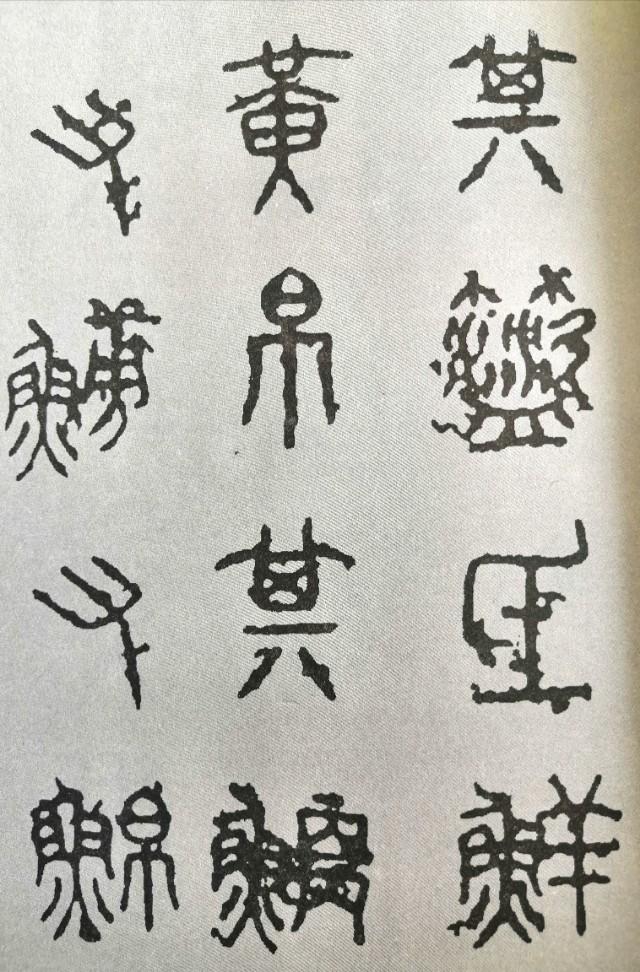 其氐鮮
黃帛其鯾
又又鮊